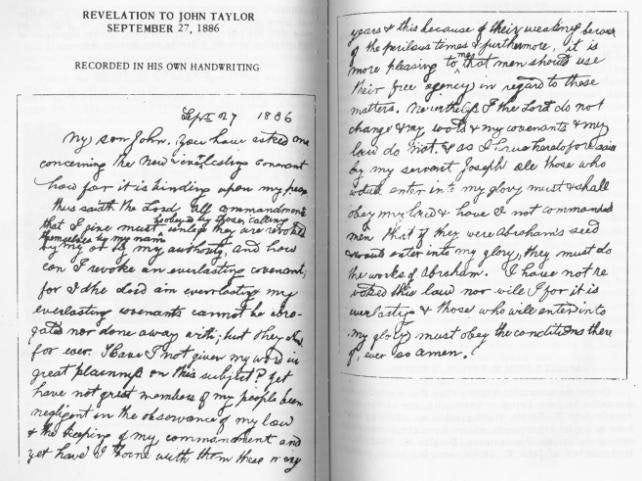 REVELATION TO JOHN TAYLOR
SEPTEMBER 27, 1886
RECORDED IN HIS OWN HANDWRITING
Sept 27 1886
My son John. You have asked me
concerning the New & Everlasting Covenant
how far it is binding upon my people
thus saith the Lord All commandments
that I give must be obeyed by those calling
themselves by my name unless they are revoked
by my or by my authority, and how
can I revoke an everlasting covenant,
for I the Lord am everlasting & my
everlasting covenants cannot be abro-
gated nor done away with; but they stand
for ever. Have I not given my word in
great plainness on this subject? Yet
have not great numbers of my people been
negligent in the observance of my law
& the keeping of my commandment and
yet have I borne with them these many
years & this because of their weakness because
of the perilous times & furthermore, it is
more pleasing to me that men should use
their free agency in regard to these
matters. Nevertheless I the Lord do not
change & my word & my covenants & my
law do not. & as I have heretofore said
by my servant Joseph all those who
would enter into my glory must & shall
obey my law & have I not commanded
men that if they were Abrahams seed
& would enter into my glory, they must do
the works of Abraham. I have not re-
voked this law nor will I for it is
everlasting & those who will enter into
my glory must obey the conditions there
of, even so amen.